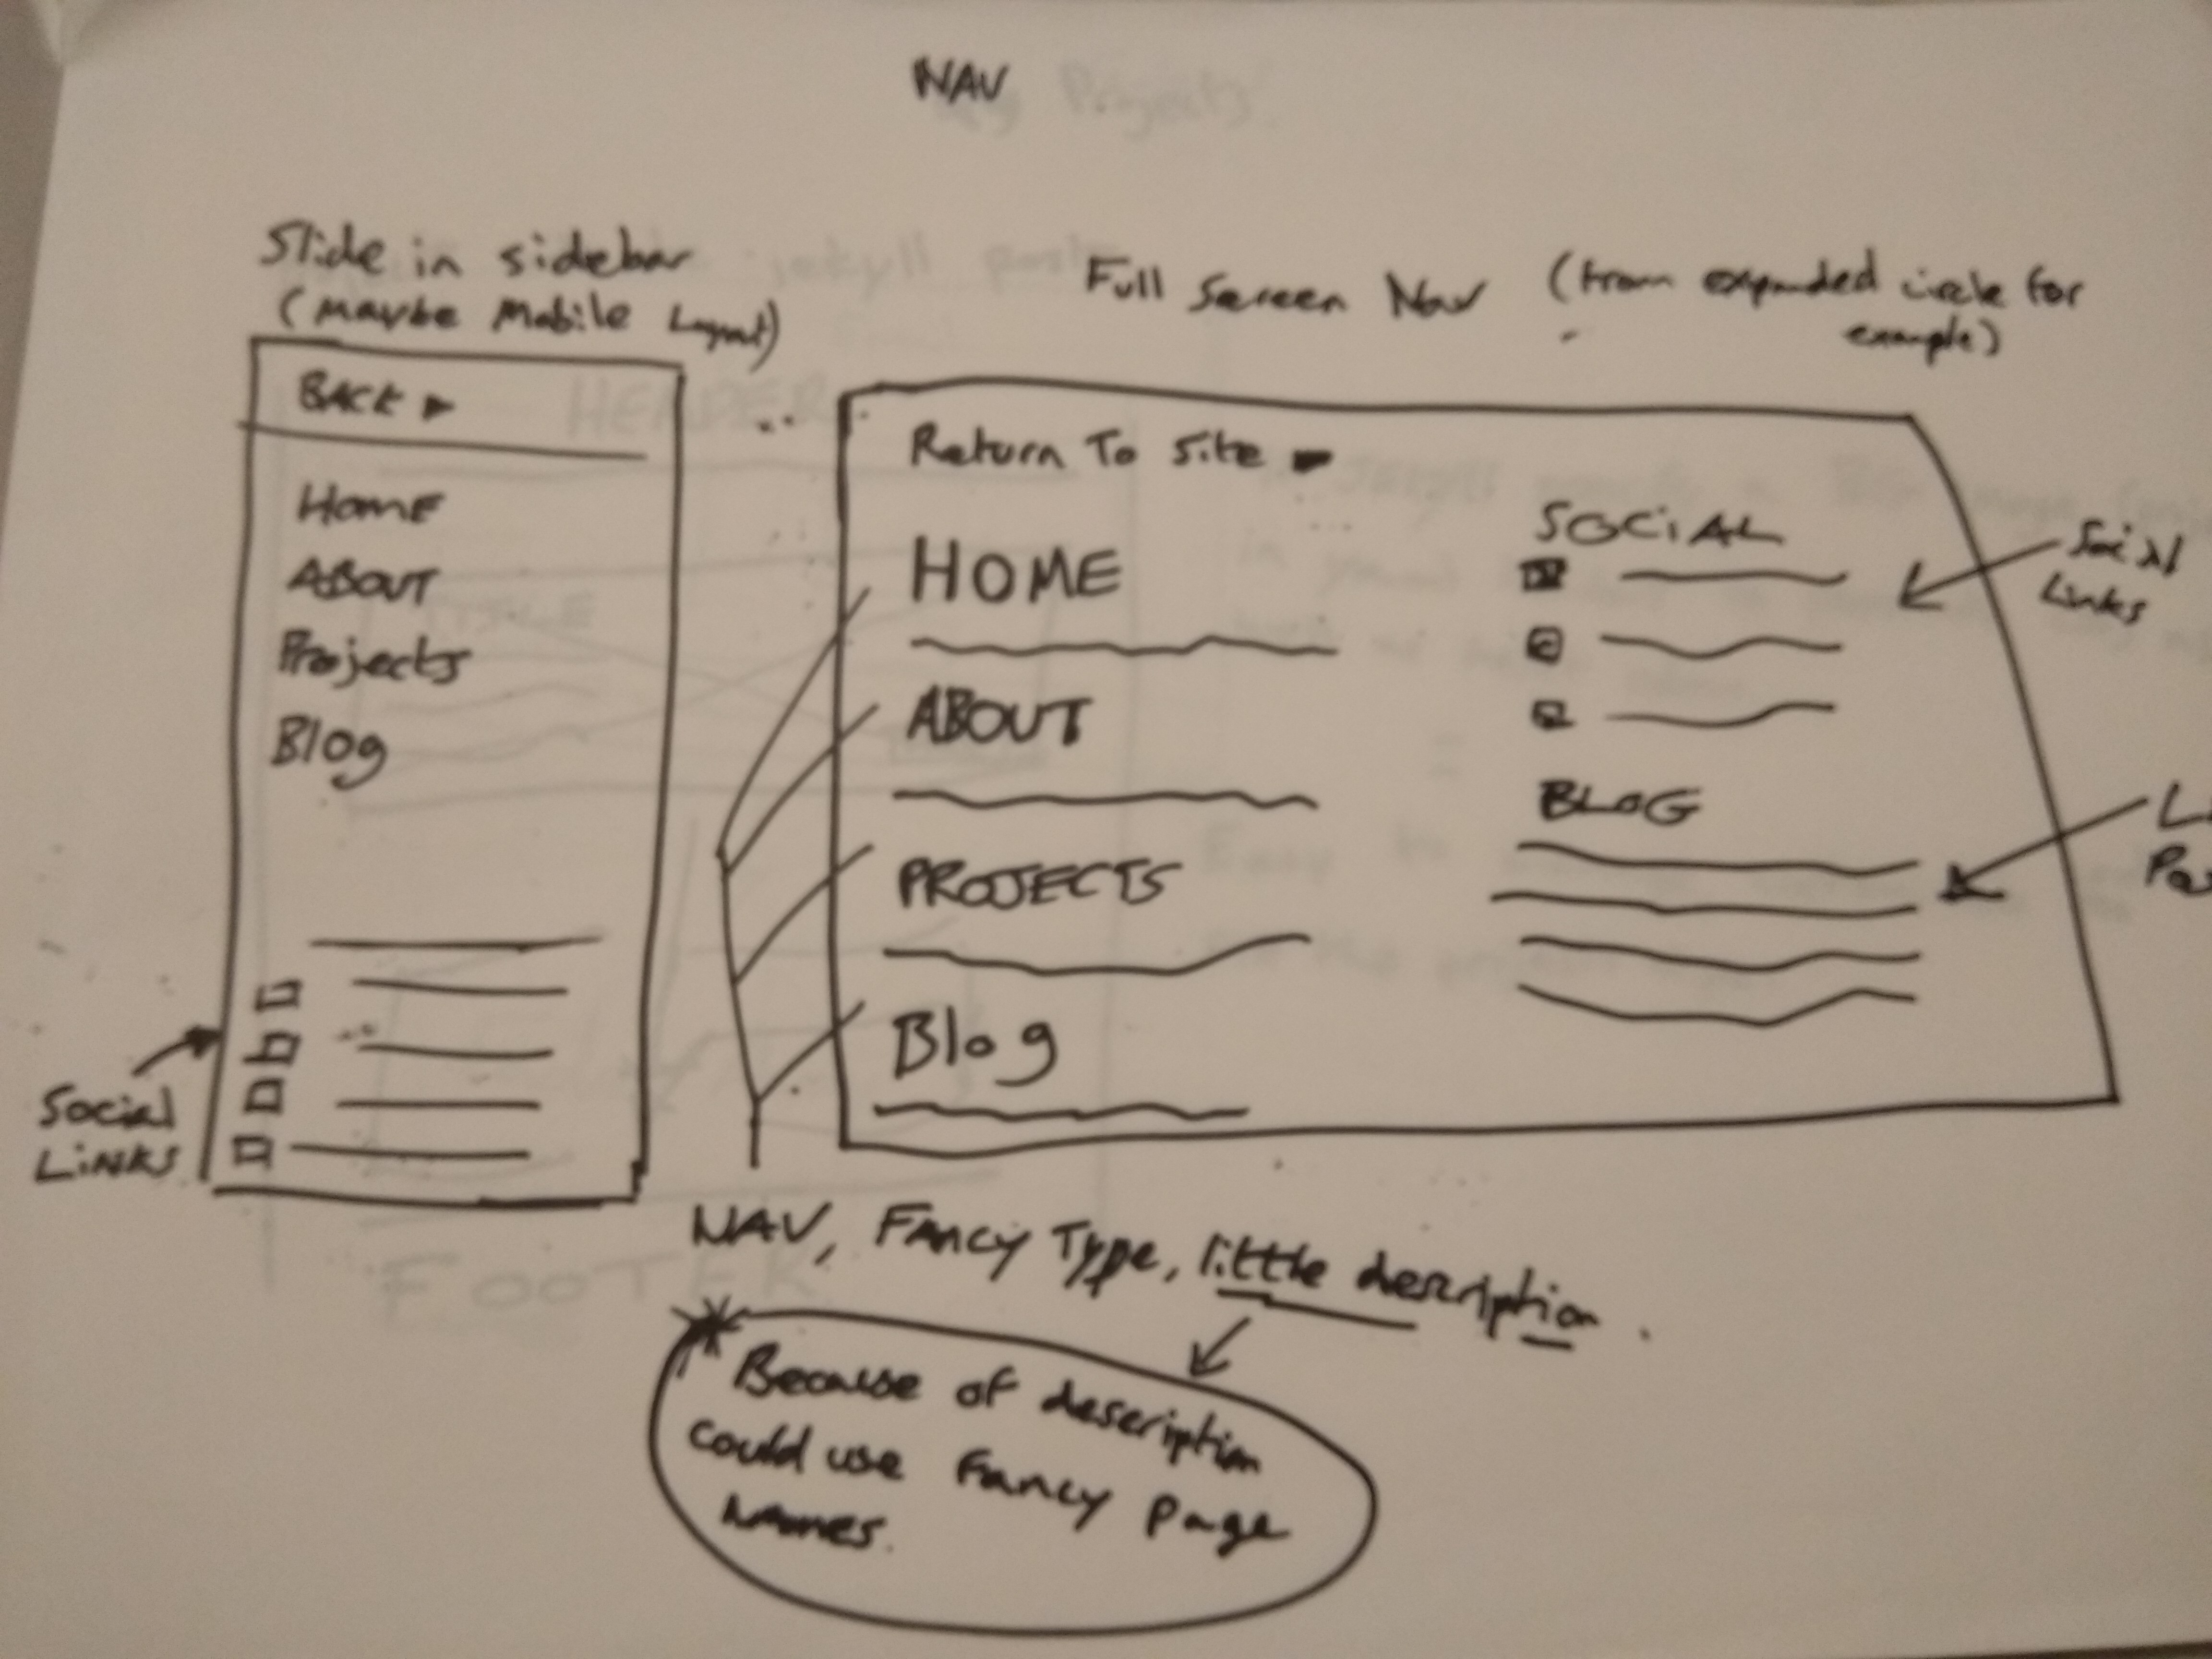 NAV
Slide in sidebar
(maybe Mobile Layout)
BACK
Home
ABOUT
Projects
Blog
Social
LINKS
Full Screen Nav (from expanded circle for
example)
Return To Site
HOME
ABOUT
PROJECTS
Blog
SOCIAL
BLOG
Social
Links
NAV, FANCY TYPE, little description.
* Because of description
could use Fancy Page
NAMES.
HEADER
FOOTER
Projects
jekyll